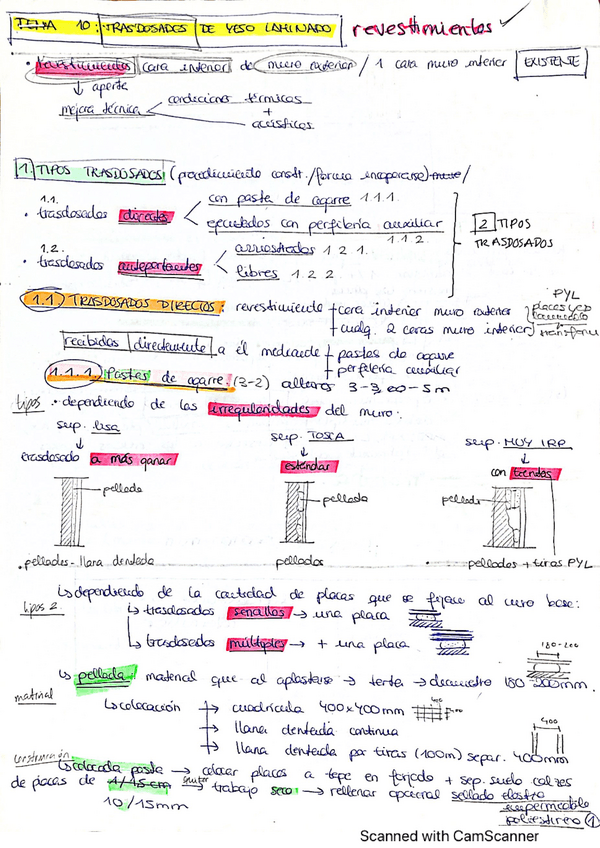 TEMA 10: TRASDOSADOS DE YESO LAMINADO revestimientos
• revestimientos cara interior de muro exterior / 1 cara muro interior EXISTENTE
↓ aporta
mejora técnica condiciones térmicas
+
acústicas
1. TIPOS TRASDOSADOS (procedimiento constr./forma incorporarse)
1.1.
• trasdosados directos con pasta de agarre 1.1.1.
ejecutados con perfilería auxiliar 1.1.2.
2 TIPOS TRASDOSADOS
1.2.
• trasdosados autoportantes arriostrados 1.2.1.
libres 1.2.2
1.1) TRASDOSADOS DIRECTOS: revestimiento cara interior muro exterior
cualq. 2 caras muro interior
PYL
placas yeso laminado
recibidos directamente a él mediante pastas de agarre
perfilería auxiliar
1.1.1. Pastas de agarre. (2-2) alturas 3-3,60-5m
tipos • dependiendo de las irregularidades del muro:
sup. lisa
↓
trasdosado a más ganar
pellada
• pelladas - llana dentada
sup. TOSCA
↓
estándar
pellada
pelladas
sup. MUY IRR
↓
con tientos
pellada
pelladas + tiras PYL
↳ dependiendo de la cantidad de placas que se fijase al muro base:
tipos 2 ↳ trasdosados sencillos → una placa
↳ trasdosados múltiples → + una placa
180-200
↳ pellada: material que al aplastarse → tenta → diámetro 180-200mm.
material
↳ colocación → cuadrícula 400x400mm 400
→ llana dentada continua
→ llana dentada por tiras (100m) separ. 400mm
400
construcción
↳ colocada pasta → colocar placas a tope en forjado + sep. suelo calzos
de placas de 1/15 cm → trabajo seco → rellenar opcional sellado elástico
10/15mm
impermeable
poliestireno 1
Scanned with CamScanner